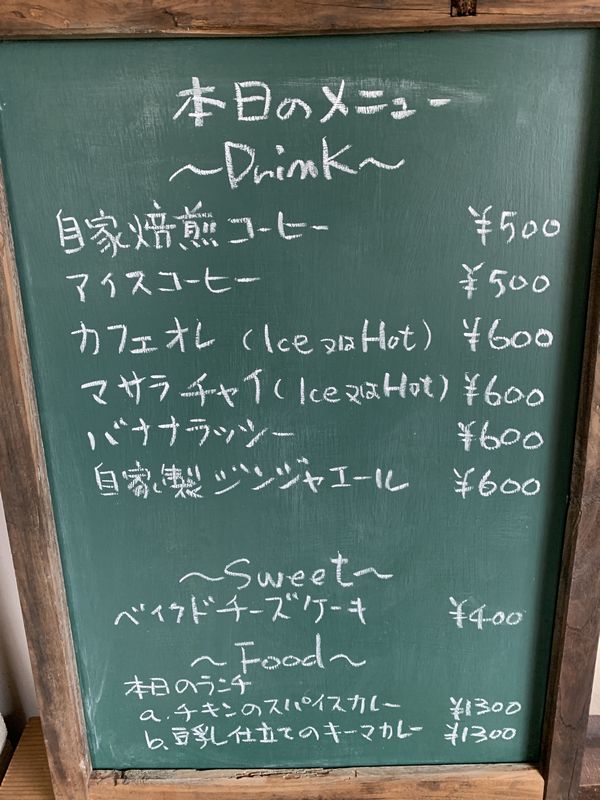 本日のメニュー
～Drink～
自家焙煎コーヒー ¥500
アイスコーヒー ¥500
カフェオレ (Ice又はHot) ¥600
マサラチャイ(Ice又はHot) ¥600
バナナラッシー ¥600
自家製ジンジャエール ¥600
～Sweet～
ベイクドチーズケーキ ¥400
～Food～
本日のランチ
a. チキンのスパイスカレー ¥1300
b. 豆乳仕立てのキーマカレー ¥1300